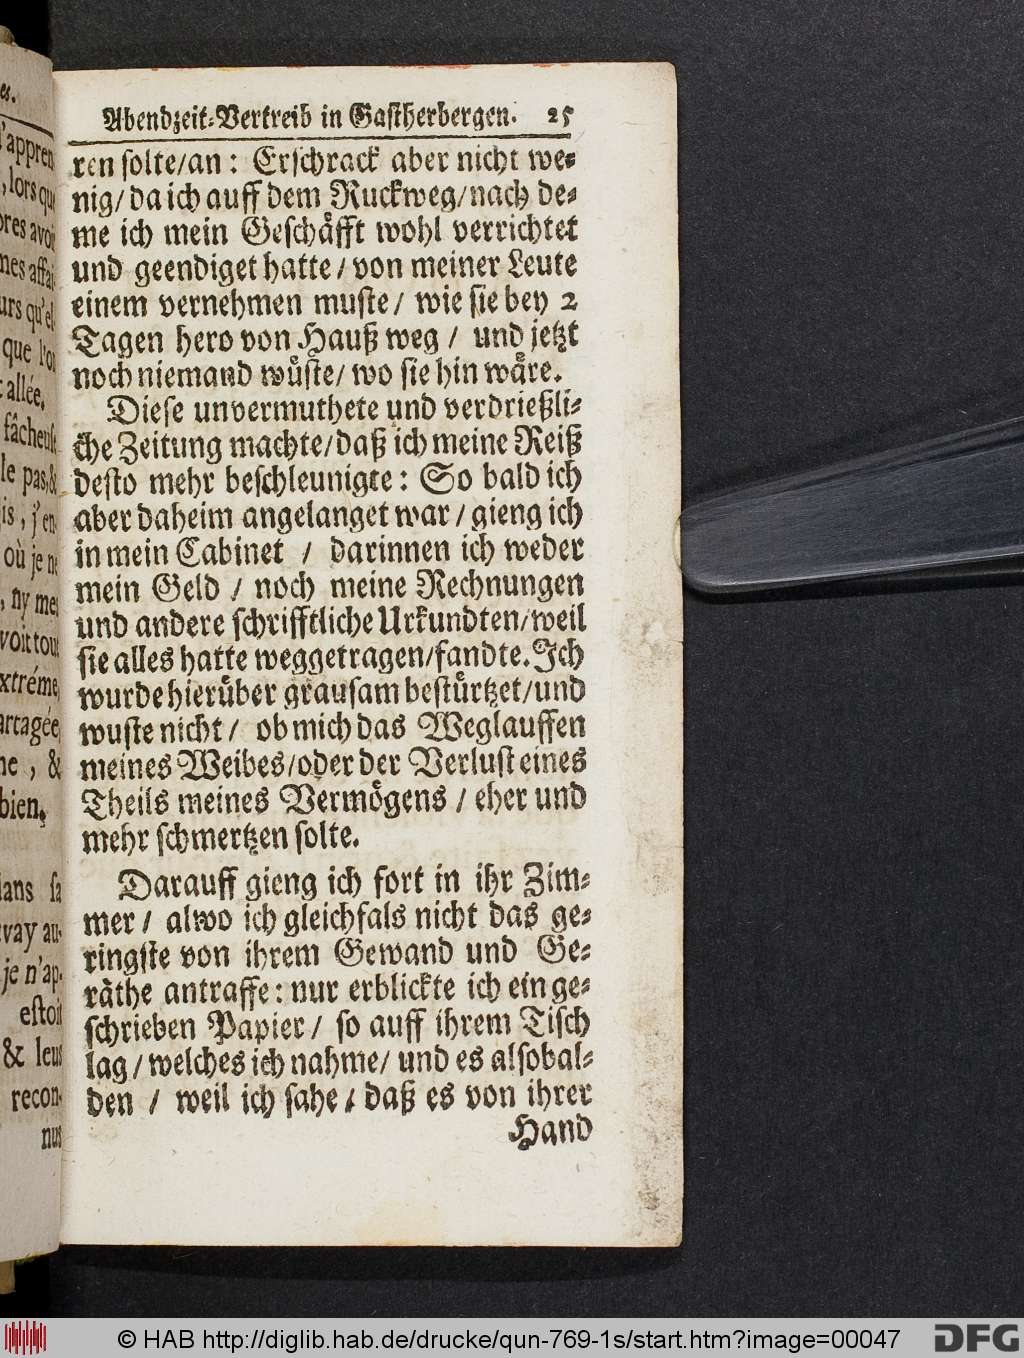 es.
l'appren
, lors que
pres avoir
mes affai-
urs qu'el-
que l'on
allée.
fâcheuse
le pas, &
is, j'en-
où je ne
, ny mes
voit tout
xtréme,
artagée
ne, &
bien.
dans sa
vay au-
je n'ap-
estoit
& leus
recon-
nus
Abendzeit-Vertreib in Gastherbergen. 25
ren solte/an: Erschrack aber nicht we-
nig/da ich auff dem Ruckweg/nach de-
me ich mein Geschäfft wohl verrichtet
und geendiget hatte/von meiner Leute
einem vernehmen muste/ wie sie bey 2
Tagen hero von Hauß weg / und jetzt
noch niemand wüste/wo sie hin wäre.
Diese unvermuthete und verdrießli-
che Zeitung machte/daß ich meine Reiß
desto mehr beschleunigte: So bald ich
aber daheim angelanget war/gieng ich
in mein Cabinet / darinnen ich weder
mein Geld / noch meine Rechnungen
und andere schrifftliche Urkundten/weil
sie alles hatte weggetragen/fandte. Ich
wurde hierüber grausam bestürtzet/und
wuste nicht / ob mich das Weglauffen
meines Weibes/oder der Verlust eines
Theils meines Vermögens / eher und
mehr schmertzen solte.
Darauff gieng ich fort in ihr Zim-
mer / alwo ich gleichfals nicht das ge-
ringste von ihrem Gewand und Ge-
räthe antraffe: nur erblickte ich ein ge-
schrieben Papier / so auff ihrem Tisch
lag / welches ich nahme/ und es alsobal-
den / weil ich sahe / daß es von ihrer
Hand
© HAB http://diglib.hab.de/drucke/qun-769-1s/start.htm?image=00047
DFG